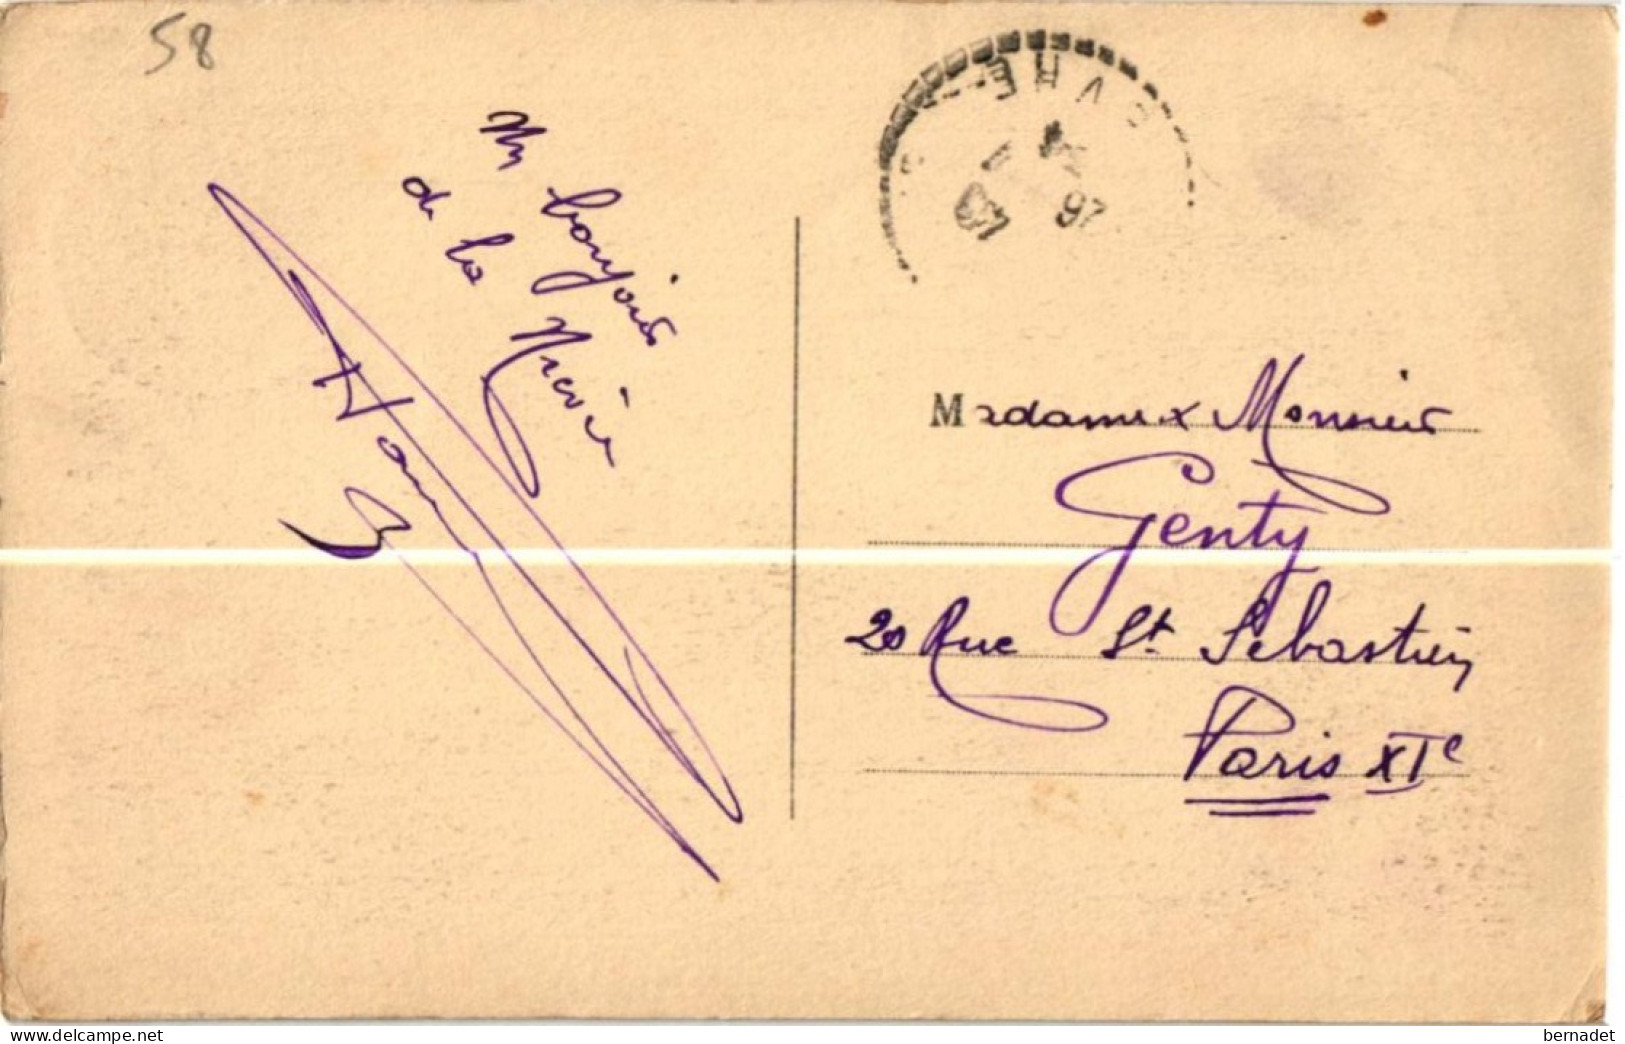 58
Un bonjour
de la Nièvre
Madame x Monsieur
Genty
20 Rue St Sébastien
Paris XIe
www.delcampe.net
bernadet